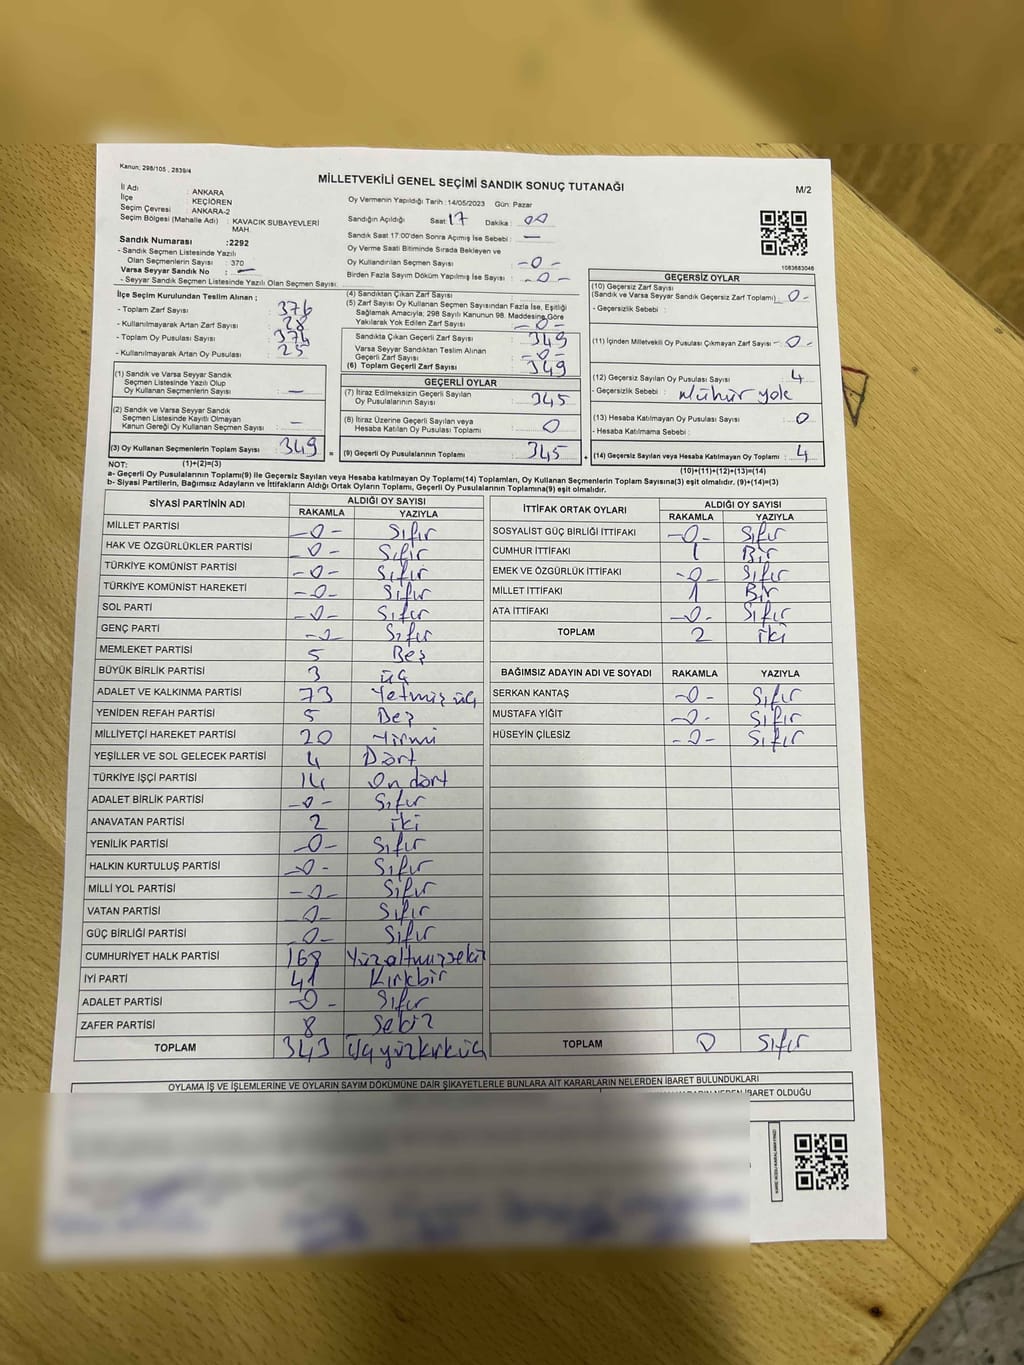 Kanun; 298/105 , 2839/4
MİLLETVEKİLİ GENEL SEÇİMİ SANDIK SONUÇ TUTANAĞI
M/2
İl Adı : ANKARA
İlçe : KEÇİÖREN
Seçim Çevresi : ANKARA-2
Seçim Bölgesi (Mahalle Adı) : KAVACIK SUBAYEVLERİ MAH.
Sandık Numarası :2292
- Sandık Seçmen Listesinde Yazılı
Olan Seçmenlerin Sayısı : 370
Varsa Seyyar Sandık No : —
- Seyyar Sandık Seçmen Listesinde Yazılı Olan Seçmen Sayısı:
Oy Vermenin Yapıldığı Tarih : 14/05/2023 Gün: Pazar
Sandığın Açıldığı Saat: 17 Dakika : 00
Sandık Saat 17:00'den Sonra Açımış İse Sebebi : —
Oy Verme Saati Bitiminde Sırada Bekleyen ve
Oy Kullandırılan Seçmen Sayısı : -0-
Birden Fazla Sayım Döküm Yapılmış İse Sayısı : -0-
1083683046
İlçe Seçim Kurulundan Teslim Alınan ;
- Toplam Zarf Sayısı : 376
- Kullanılmayarak Artan Zarf Sayısı : 28
- Toplam Oy Pusulası : 376
- Kullanılmayarak Artan Oy Pusulası : 25
(1) Sandık ve Varsa Seyyar Sandık
Seçmen Listesinde Yazılı Olup
Oy Kullanan Seçmenlerin Sayısı : —
(2) Sandık ve Varsa Seyyar Sandık
Seçmen Listesinde Kayıtlı Olmayan
Kanun Gereği Oy Kullanan Seçmen Sayısı : -
(3) Oy Kullanan Seçmenlerin Toplam Sayısı : 349
(1)+(2)=(3)
(4) Sandıktan Çıkan Zarf Sayısı
(5) Zarf Sayısı Oy Kullanan Seçmen Sayısından Fazla İse, Eşitliği
Sağlamak Amacıyla; 298 Sayılı Kanunun 98. Maddesine Göre
Yakılarak Yok Edilen Zarf Sayısı : -0-
Sandıkta Çıkan Geçerli Zarf Sayısı : 349
Varsa Seyyar Sandıktan Teslim Alınan
Geçerli Zarf Sayısı : -0-
(6) Toplam Geçerli Zarf Sayısı : 349
GEÇERLİ OYLAR
(7) İtiraz Edilmeksizin Geçerli Sayılan
Oy Pusulalarının Sayısı : 345
(8) İtiraz Üzerine Geçerli Sayılan veya
Hesaba Katılan Oy Pusulası Toplamı : 0
(9) Geçerli Oy Pusulalarının Toplamı : 345
GEÇERSİZ OYLAR
(10) Geçersiz Zarf Sayısı
(Sandık ve Varsa Seyyar Sandık Geçersiz Zarf Toplamı) : 0-
- Geçersizlik Sebebi :
(11) İçinden Milletvekili Oy Pusulası Çıkmayan Zarf Sayısı - 0 -
(12) Geçersiz Sayılan Oy Pusulası Sayısı : 4
- Geçersizlik Sebebi : Mühür yok
(13) Hesaba Katılmayan Oy Pusulası Sayısı : 0
- Hesaba Katılmama Sebebi :
(14) Geçersiz Sayılan veya Hesaba Katılmayan Oy Toplamı : 4
(10)+(11)+(12)+(13)=(14)
NOT:
a- Geçerli Oy Pusulalarının Toplamı(9) ile Geçersiz Sayılan veya Hesaba katılmayan Oy Toplamı(14) Toplamları, Oy Kullanan Seçmenlerin Toplam Sayısına(3) eşit olmalıdır. (9)+(14)=(3)
b- Siyasi Partilerin, Bağımsız Adayların ve İttifakların Aldığı Ortak Oyların Toplamı, Geçerli Oy Pusulalarının Toplamına(9) eşit olmalıdır.
SİYASİ PARTİNİN ADI ALDIĞI OY SAYISI
RAKAMLA YAZIYLA
MİLLET PARTİSİ -0- Sıfır
HAK VE ÖZGÜRLÜKLER PARTİSİ -0- Sıfır
TÜRKİYE KOMÜNİST PARTİSİ -0- Sıfır
TÜRKİYE KOMÜNİST HAREKETİ -0- Sıfır
SOL PARTİ -0- Sıfır
GENÇ PARTİ -0- Sıfır
MEMLEKET PARTİSİ 5 Beş
BÜYÜK BİRLİK PARTİSİ 3 üç
ADALET VE KALKINMA PARTİSİ 73 Yetmiş üç
YENİDEN REFAH PARTİSİ 5 Beş
MİLLİYETÇİ HAREKET PARTİSİ 20 Yirmi
YEŞİLLER VE SOL GELECEK PARTİSİ 4 Dört
TÜRKİYE İŞÇİ PARTİSİ 14 On dört
ADALET BİRLİK PARTİSİ -0- Sıfır
ANAVATAN PARTİSİ 2 iki
YENİLİK PARTİSİ -0- Sıfır
HALKIN KURTULUŞ PARTİSİ -0- Sıfır
MİLLİ YOL PARTİSİ -0- Sıfır
VATAN PARTİSİ -0- Sıfır
GÜÇ BİRLİĞİ PARTİSİ -0- Sıfır
CUMHURİYET HALK PARTİSİ 168 Yüzaltmışsekiz
İYİ PARTİ 41 Kırkbir
ADALET PARTİSİ -0- Sıfır
ZAFER PARTİSİ 8 Sekiz
TOPLAM 343 Üçyüzkırküç
İTTİFAK ORTAK OYLARI ALDIĞI OY SAYISI
RAKAMLA YAZIYLA
SOSYALİST GÜÇ BİRLİĞİ İTTİFAKI -0- Sıfır
CUMHUR İTTİFAKI 1 Bir
EMEK VE ÖZGÜRLÜK İTTİFAKI -0- Sıfır
MİLLET İTTİFAKI 1 Bir
ATA İTTİFAKI -0- Sıfır
TOPLAM 2 iki
BAĞIMSIZ ADAYIN ADI VE SOYADI RAKAMLA YAZIYLA
SERKAN KANTAŞ -0- Sıfır
MUSTAFA YİĞİT -0- Sıfır
HÜSEYİN ÇİLESİZ -0- Sıfır
TOPLAM 0 Sıfır
OYLAMA İŞ VE İŞLEMLERİNE VE OYLARIN SAYIM DÖKÜMÜNE DAİR ŞİKAYETLERLE BUNLARA AİT KARARLARIN NELERDEN İBARET BULUNDUKLARI
İBARET OLDUĞU